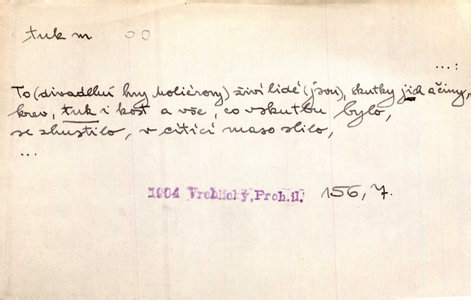 tuk m
...:
To (divadelní hry Molièrovy) živí lidé (jsou), skutky jich a činy,
krev, tuk i kost a vše, co vskutku bylo,
se zhustilo, v cítící maso slilo,
...
1904 Vrchlický, Preh. II. 156, 7.